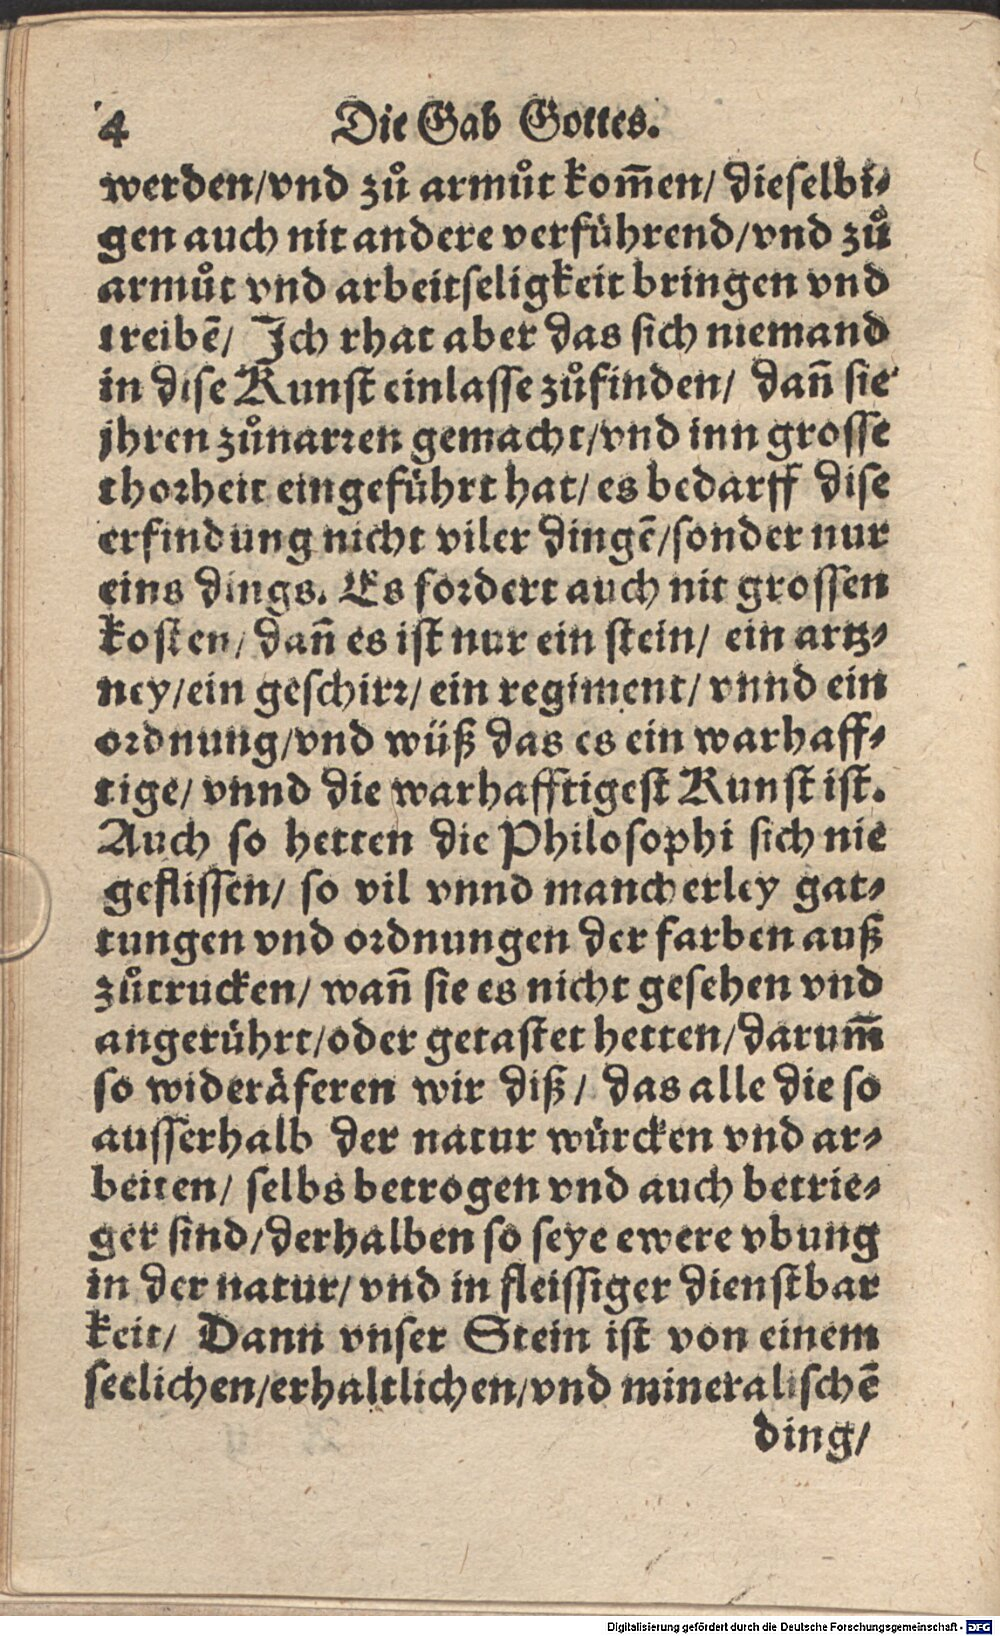 4 Die Gab Gottes.
werden/vnd zuͦ armuͦt kom̃en/ dieselbi⸗
gen auch nit andere verführend/vnd zuͦ
armuͦt vnd arbeitseligkeit bringen vnd
treibē/ Ich rhat aber das sich niemand
in dise Kunst einlasse zuͦfinden/ dañ sie
jhren zuͦnarren gemacht/vnd inn grosse
thorheit eingeführt hat/ es bedarff dise
erfindung nicht viler dingē/sonder nur
eins dings. Es fordert auch nit grossen
kosten/ dañ es ist nur ein stein/ ein artz⸗
ney/ein geschirr/ ein regiment/ vnnd ein
ordnung/vnd wüß das es ein warhaff⸗
tige/ vnnd die warhafftigest Kunst ist.
Auch so hetten die Philosophi sich nie
geflissen/ so vil vnnd mancherley gat⸗
tungen vnd ordnungen der farben auß
zuͦtrucken/ wañ sie es nicht gesehen vnd
angerührt/oder getastet hetten/darum̃
so wideräferen wir diß/ das alle die so
ausserhalb der natur würcken vnd ar⸗
beiten/ selbs betrogen vnd auch betrie⸗
ger sind/derhalben so seye ewere vbung
in der natur/ vnd in fleissiger dienstbar
keit/ Dann vnser Stein ist von einem
seelichen/erhaltlichen/vnd mineralischē
ding/
Digitalisierung gefördert durch die Deutsche Forschungsgemeinschaft - DFG